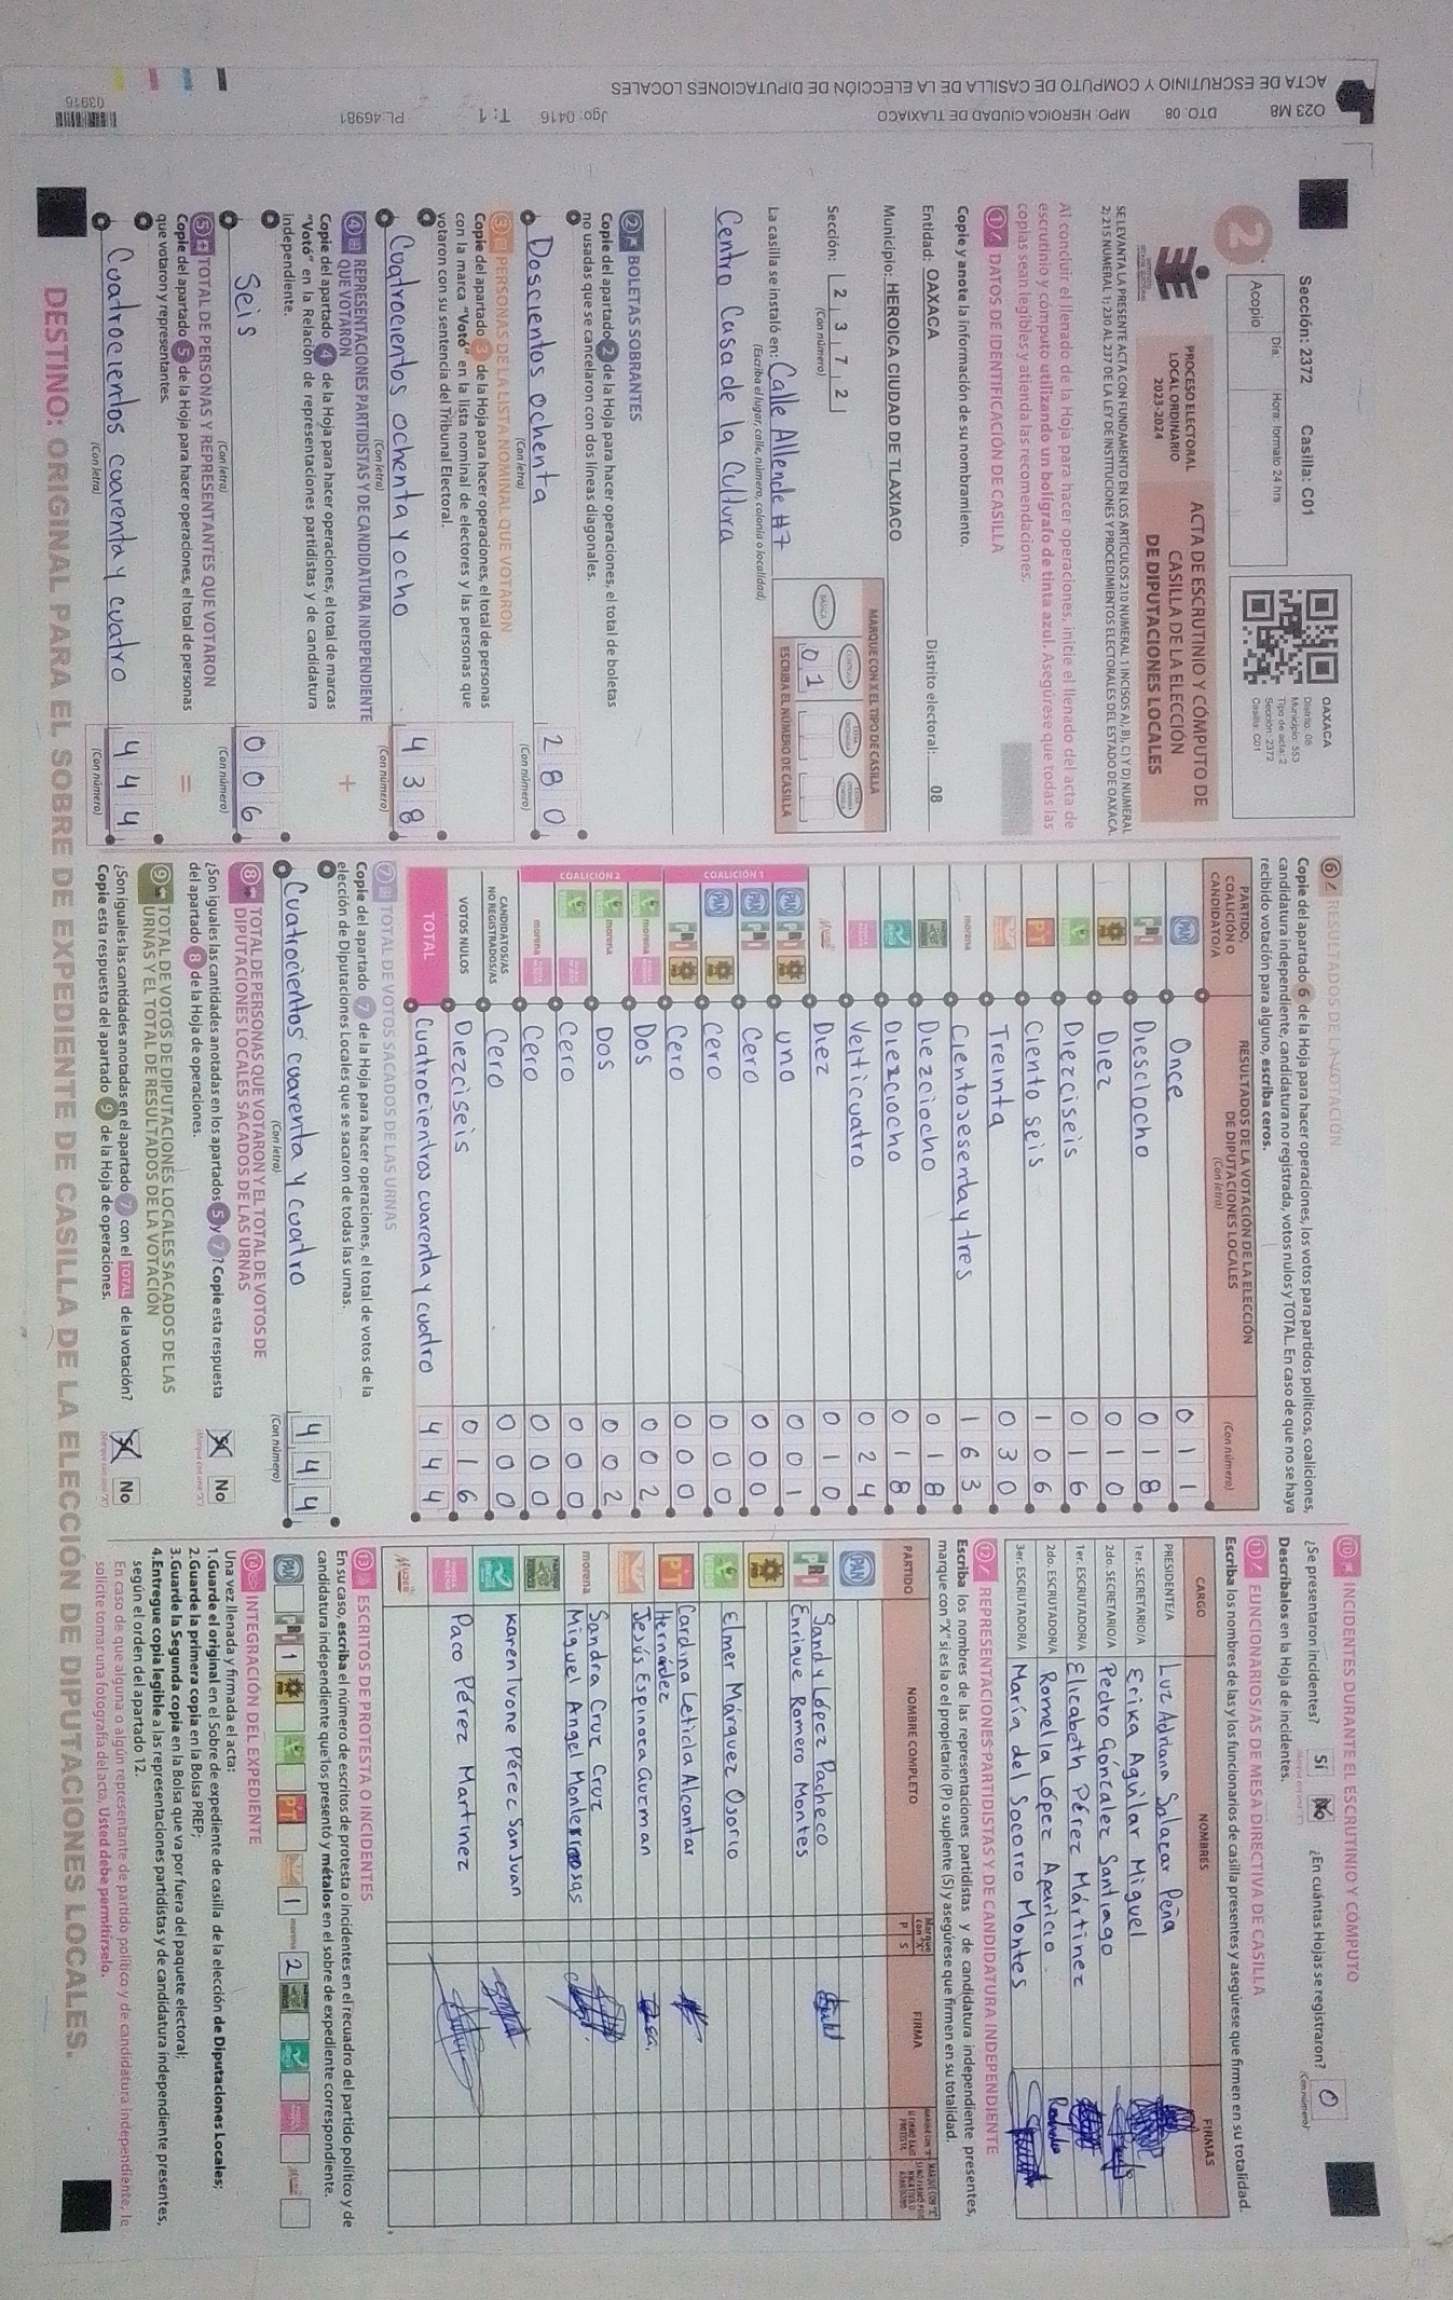 O23 M8 DTO: 08 MPO: HEROICA CIUDAD DE TLAXIACO Jgo: 0416 T: 1 PL: 46981
ACTA DE ESCRUTINIO Y CÓMPUTO DE CASILLA DE LA ELECCIÓN DE DIPUTACIONES LOCALES
03916
Sección: 2372 Casilla: C01
2
Acopio
Día: Hora: formato 24 hrs
OAXACA
Distrito: 08
Municipio: 553
Tipo de acta: 2
Sección: 2372
Casilla: C01
PROCESO ELECTORAL
LOCAL ORDINARIO
2023-2024
ACTA DE ESCRUTINIO Y CÓMPUTO DE
CASILLA DE LA ELECCIÓN
DE DIPUTACIONES LOCALES
SE LEVANTA LA PRESENTE ACTA CON FUNDAMENTO EN LOS ARTÍCULOS 210 NUMERAL 1 INCISOS A), B), C) Y D) NUMERAL
2; 215 NUMERAL 1; 230 AL 237 DE LA LEY DE INSTITUCIONES Y PROCEDIMIENTOS ELECTORALES DEL ESTADO DE OAXACA.
Al concluir el llenado de la Hoja para hacer operaciones, inicie el llenado del acta de
escrutinio y cómputo utilizando un bolígrafo de tinta azul. Asegúrese que todas las
copias sean legibles y atienda las recomendaciones.
1 DATOS DE IDENTIFICACIÓN DE CASILLA
Copie y anote la información de su nombramiento.
Entidad: OAXACA Distrito electoral: 08
Municipio: HEROICA CIUDAD DE TLAXIACO
Sección: 2 3 7 2
(Con número)
MARQUE CON X EL TIPO DE CASILLA
BÁSICA
0 1
ESCRIBA EL NÚMERO DE CASILLA
La casilla se instaló en: Calle Allende #7
(Escriba el lugar, calle, número, colonia o localidad)
Centro Casa de la Cultura
2 BOLETAS SOBRANTES
Copie del apartado 2 de la Hoja para hacer operaciones, el total de boletas
no usadas que se cancelaron con dos líneas diagonales.
Doscientos ochenta 2 8 0
(Con letra) (Con número)
3 PERSONAS DE LA LISTA NOMINAL QUE VOTARON
Copie del apartado 3 de la Hoja para hacer operaciones, el total de personas
con la marca "Votó" en la lista nominal de electores y las personas que
votaron con su sentencia del Tribunal Electoral.
Cuatrocientos ochenta y ocho 4 3 8
(Con letra) (Con número)
4 REPRESENTACIONES PARTIDISTAS Y DE CANDIDATURA INDEPENDIENTE
QUE VOTARON
Copie del apartado 4 de la Hoja para hacer operaciones, el total de marcas
"Votó" en la Relación de representaciones partidistas y de candidatura
independiente.
+
Seis 0 0 6
(Con letra) (Con número)
5 TOTAL DE PERSONAS Y REPRESENTANTES QUE VOTARON
Copie del apartado 5 de la Hoja para hacer operaciones, el total de personas
que votaron y representantes.
=
Cuatrocientos cuarenta y cuatro 4 4 4
(Con letra) (Con número)
6 RESULTADOS DE LA VOTACIÓN
Copie del apartado 6 de la Hoja para hacer operaciones, los votos para partidos políticos, coaliciones,
candidatura independiente, candidatura no registrada, votos nulos y TOTAL. En caso de que no se haya
recibido votación para alguno, escriba ceros.
PARTIDO, COALICIÓN O CANDIDATO/A
RESULTADOS DE LA VOTACIÓN DE LA ELECCIÓN DE DIPUTACIONES LOCALES
(Con letra) (Con número)
PAN Once 0 1 1
PRI Diesciocho 0 1 8
PRD Diez 0 1 0
VERDE Diezciseis 0 1 6
PT Ciento seis 1 0 6
Treinta 0 3 0
morena Ciento sesenta y tres 1 6 3
Diezciocho 0 1 8
Diezciocho 0 1 8
Veiticuatro 0 2 4
Diez 0 1 0
COALICIÓN 1
PAN PRI PRD uno 0 0 1
PAN PRI Cero 0 0 0
PAN PRD Cero 0 0 0
PRI PRD Cero 0 0 0
COALICIÓN 2
morena Dos 0 0 2
morena Dos 0 0 2
Cero 0 0 0
morena Cero 0 0 0
CANDIDATOS/AS NO REGISTRADOS/AS Cero 0 0 0
VOTOS NULOS Diezciseis 0 1 6
TOTAL Cuatrocientros cuarenta y cuatro 4 4 4
7 TOTAL DE VOTOS SACADOS DE LAS URNAS
Copie del apartado 7 de la Hoja para hacer operaciones, el total de votos de la
elección de Diputaciones Locales que se sacaron de todas las urnas.
Cuatrocientos cuarenta y cuatro 4 4 4
(Con letra) (Con número)
8 TOTAL DE PERSONAS QUE VOTARON Y EL TOTAL DE VOTOS DE
DIPUTACIONES LOCALES SACADOS DE LAS URNAS
¿Son iguales las cantidades anotadas en los apartados 5 y 7? Copie esta respuesta
del apartado 8 de la Hoja de operaciones.
Sí No
9 TOTAL DE VOTOS DE DIPUTACIONES LOCALES SACADOS DE LAS
URNAS Y EL TOTAL DE RESULTADOS DE LA VOTACIÓN
¿Son iguales las cantidades anotadas en el apartado 7 con el TOTAL de la votación?
Copie esta respuesta del apartado 9 de la Hoja de operaciones.
Sí No
10 INCIDENTES DURANTE EL ESCRUTINIO Y CÓMPUTO
¿Se presentaron incidentes? Sí No ¿En cuántas Hojas se registraron? 0
(Con número)
Descríbalos en la Hoja de incidentes.
11 FUNCIONARIOS/AS DE MESA DIRECTIVA DE CASILLA
Escriba los nombres de las y los funcionarios de casilla presentes y asegúrese que firmen en su totalidad.
CARGO NOMBRES FIRMAS
PRESIDENTE/A Luz Adriana Salazar Peña
1er. SECRETARIO/A Erika Aguilar Miguel
2do. SECRETARIO/A Pedro González Santiago
1er. ESCRUTADOR/A Elizabeth Pérez Mártinez
2do. ESCRUTADOR/A Romella López Aparicio
3er. ESCRUTADOR/A María del Socorro Montes
12 REPRESENTACIONES PARTIDISTAS Y DE CANDIDATURA INDEPENDIENTE
Escriba los nombres de las representaciones partidistas y de candidatura independiente presentes,
marque con "X" si es la o el propietario (P) o suplente (S) y asegúrese que firmen en su totalidad.
PARTIDO NOMBRE COMPLETO Marque con "X" P S FIRMA
PAN
Sandy López Pacheco
PRI Enrique Romero Montes
PRD
VERDE Elmer Márquez Osorio
PT Cardina Leticia Alcantar
Hernández
Jesús Espinoza Guzman
morena Sandra Cruz Cruz
Miguel Angel Monterrosas
Karen Ivone Pérez San Juan
Paco Pérez Martínez
13 ESCRITOS DE PROTESTA O INCIDENTES
En su caso, escriba el número de escritos de protesta o incidentes en el recuadro del partido político y de
candidatura independiente que los presentó y métalos en el sobre de expediente correspondiente.
PAN PRI 1 PRD PT 1 morena 2
14 INTEGRACIÓN DEL EXPEDIENTE
Una vez llenada y firmada el acta:
1.Guarde el original en el Sobre de expediente de casilla de la elección de Diputaciones Locales;
2.Guarde la primera copia en la Bolsa PREP;
3.Guarde la Segunda copia en la Bolsa que va por fuera del paquete electoral;
4.Entregue copia legible a las representaciones partidistas y de candidatura independiente presentes,
según el orden del apartado 12.
En caso de que alguna o algún representante de partido político y de candidatura independiente, le
solicite tomar una fotografía del acta, Usted debe permitírselo.
DESTINO: ORIGINAL PARA EL SOBRE DE EXPEDIENTE DE CASILLA DE LA ELECCIÓN DE DIPUTACIONES LOCALES.